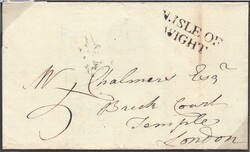 N.ISLE OF
WIGHT
Wm Chalmers Esqr
5
Brick Court
Temple
London